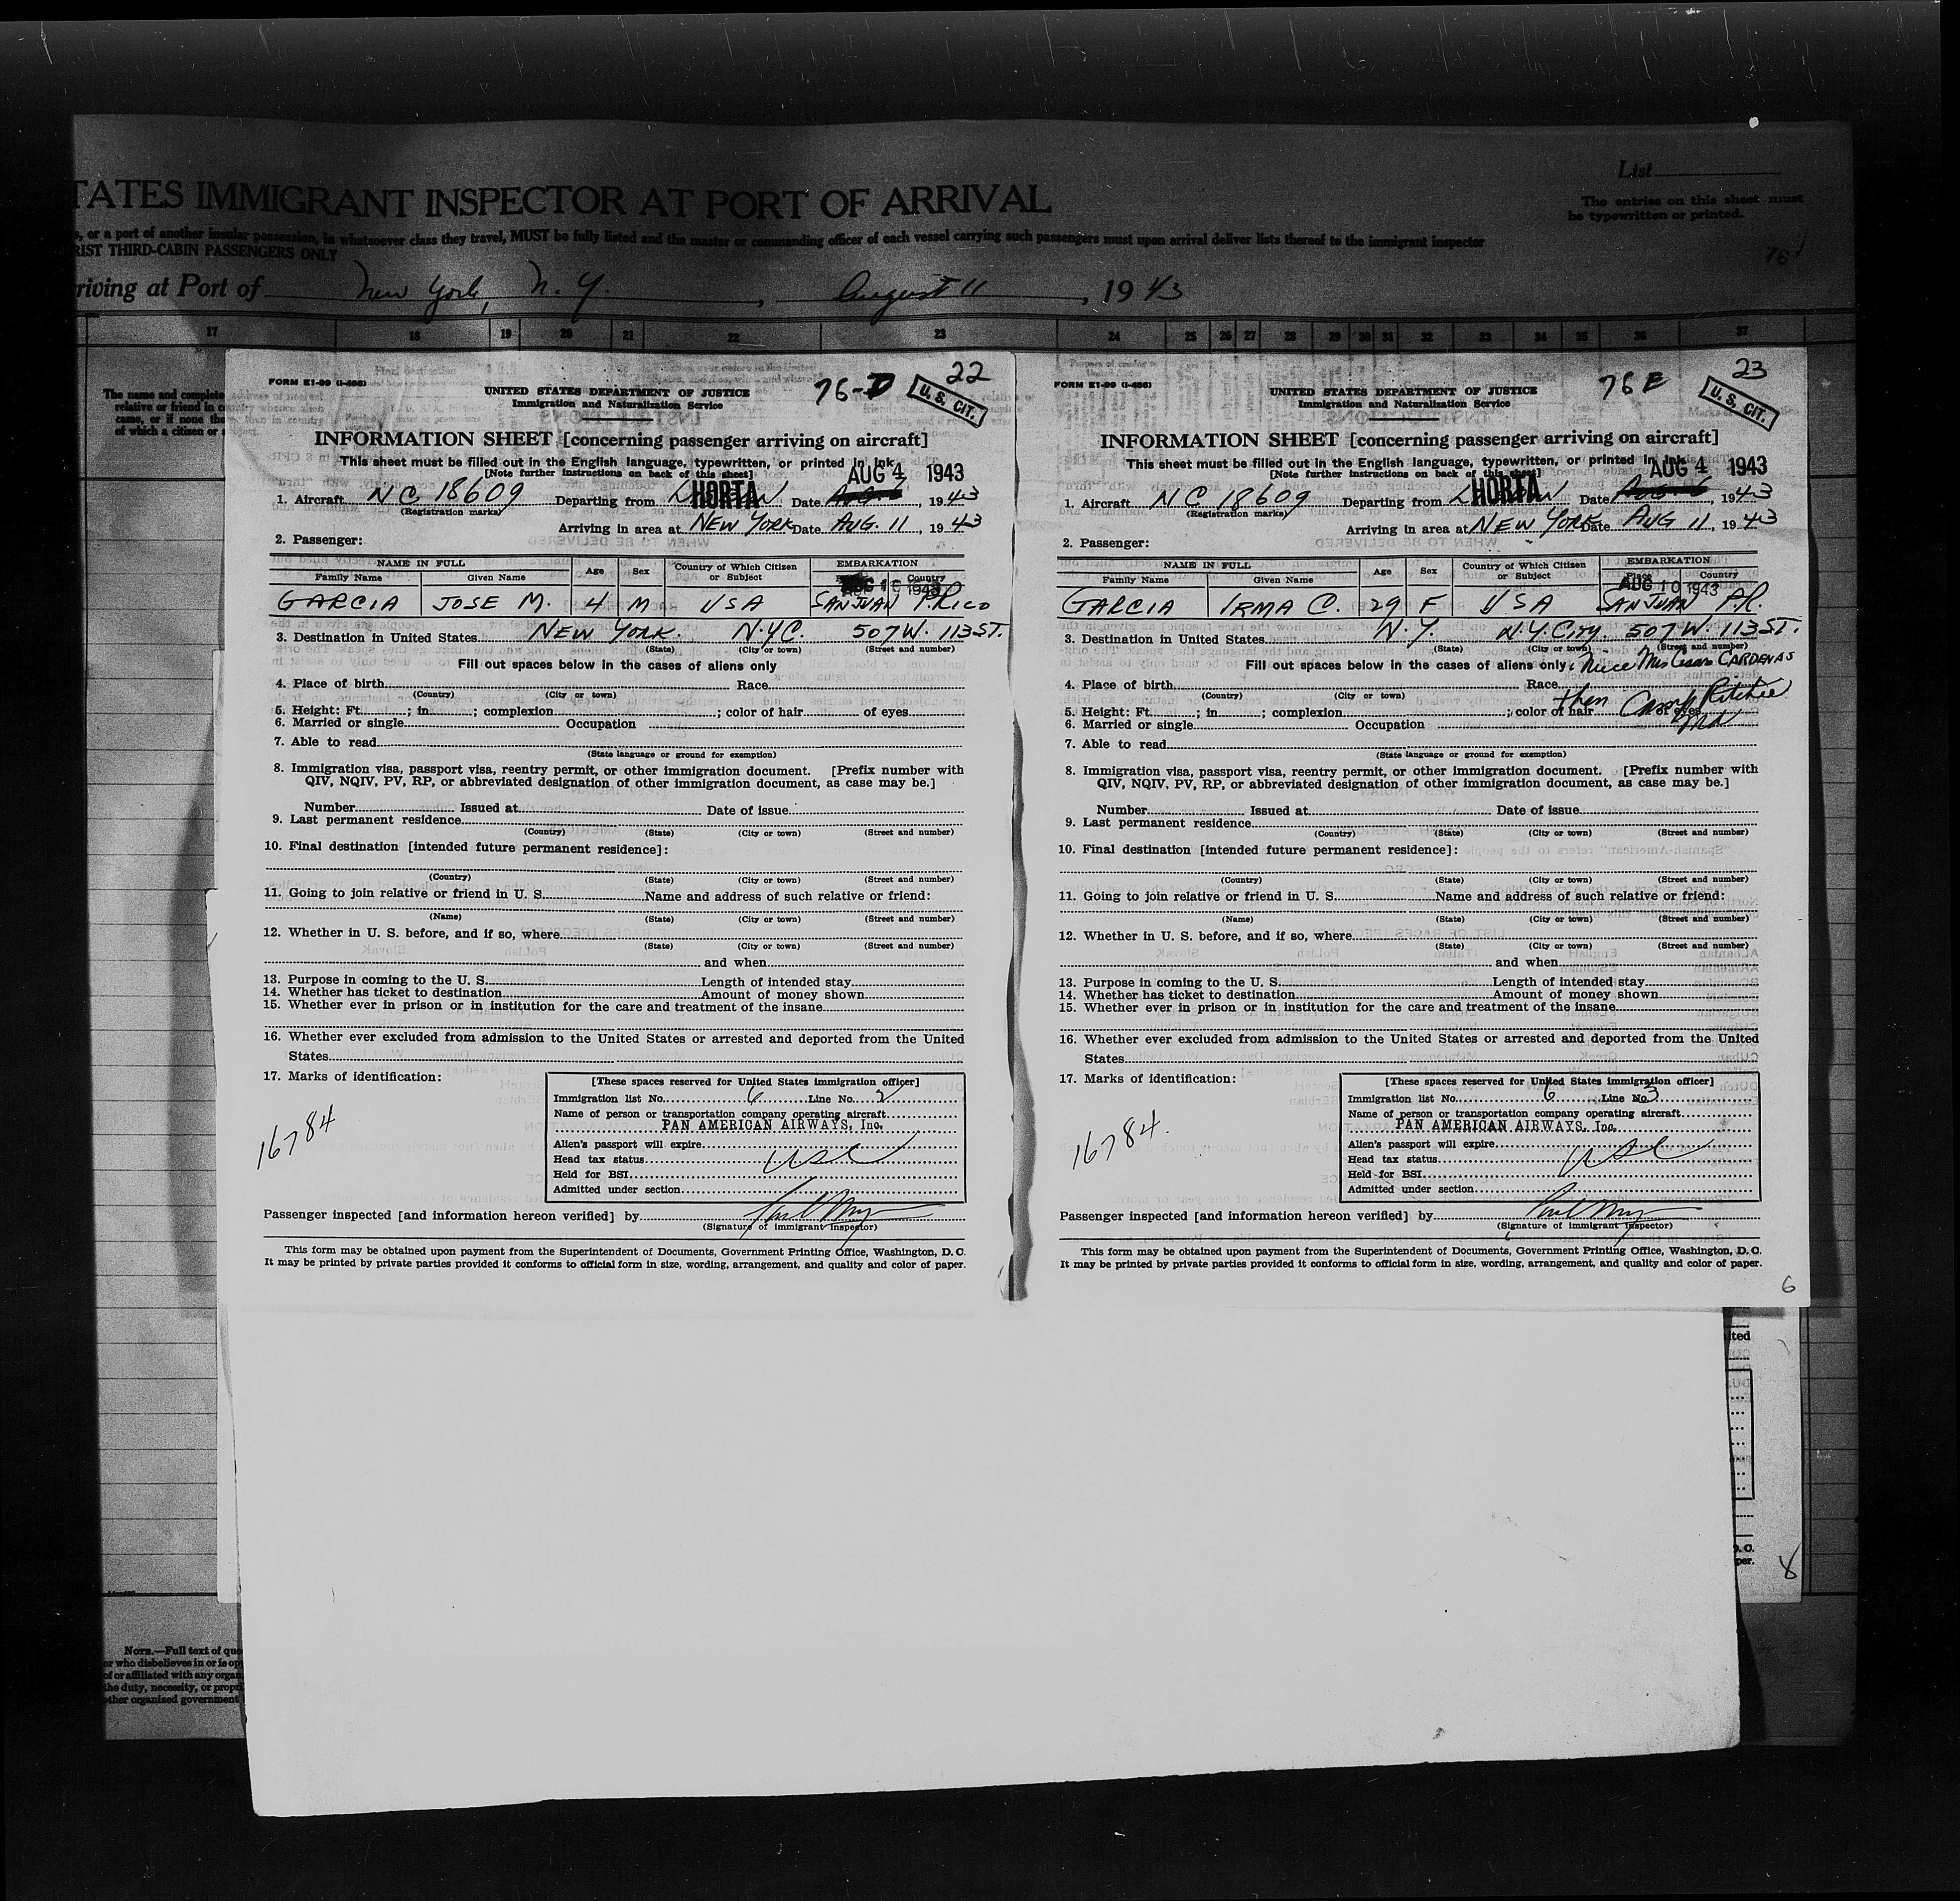 TATES IMMIGRANT INSPECTOR AT PORT OF ARRIVAL
List
The entries on this sheet must
be typewritten or printed.
s, or a port of another insular possession, in whatsoever class they travel, MUST be fully listed and the master or commanding officer of each vessel carrying such passengers must upon arrival deliver lists thereof to the immigrant inspector
RIST THIRD-CABIN PASSENGERS ONLY
76
riving at Port of New York, N. Y., August 11, 1943
17 18 19 20 21 22 23 24 25 26 27 28 29 30 31 32 33 34 35 36 37
The name and complete
relative or friend in
came, or if none the
of which a citizen or
FORM E1-99 (I-466)
76-D
22
U. S. CIT.
UNITED STATES DEPARTMENT OF JUSTICE
Immigration and Naturalization Service
INFORMATION SHEET [concerning passenger arriving on aircraft]
This sheet must be filled out in the English language, typewritten, or printed in ink.
[Note further instructions on back of this sheet]
AUG 4 1943
1. Aircraft NC 18609 Departing from HORTA Date Aug. 6, 1943
(Registration marks)
Arriving in area at NEW YORK Date AUG. 11, 1943
2. Passenger:
NAME IN FULL Age Sex Country of Which Citizen or Subject EMBARKATION
Family Name Given Name Country
AUG 10 1943
GARCIA JOSE M. 4 M USA SAN JUAN P. RICO
3. Destination in United States NEW YORK. N.Y.C. 507 W. 113 ST.
(State) (City or town) (Street and number)
Fill out spaces below in the cases of aliens only
4. Place of birth Race
(Country) (City or town)
5. Height: Ft. ; in ; complexion ; color of hair of eyes
6. Married or single Occupation
7. Able to read
(State language or ground for exemption)
8. Immigration visa, passport visa, reentry permit, or other immigration document. [Prefix number with
QIV, NQIV, PV, RP, or abbreviated designation of other immigration document, as case may be.]
Number Issued at Date of issue
9. Last permanent residence
(Country) (State) (City or town) (Street and number)
10. Final destination [intended future permanent residence]:
(Country) (State) (City or town) (Street and number)
11. Going to join relative or friend in U. S. Name and address of such relative or friend:
(Name) (State) (City or town) (Street and number)
12. Whether in U. S. before, and if so, where
(State) (City or town) (Street and number)
and when
13. Purpose in coming to the U. S. Length of intended stay
14. Whether has ticket to destination Amount of money shown
15. Whether ever in prison or in institution for the care and treatment of the insane
16. Whether ever excluded from admission to the United States or arrested and deported from the United
States
17. Marks of identification:
16784
[These spaces reserved for United States immigration officer]
Immigration list No. 6 Line No. 2
Name of person or transportation company operating aircraft
PAN AMERICAN AIRWAYS, Inc.
Alien's passport will expire
Head tax status USC
Held for BSI
Admitted under section
Passenger inspected [and information hereon verified] by
(Signature of immigrant inspector)
This form may be obtained upon payment from the Superintendent of Documents, Government Printing Office, Washington, D. C.
It may be printed by private parties provided it conforms to official form in size, wording, arrangement, and quality and color of paper.
FORM E1-99 (I-466)
76 E
23
U. S. CIT.
UNITED STATES DEPARTMENT OF JUSTICE
Immigration and Naturalization Service
INFORMATION SHEET [concerning passenger arriving on aircraft]
This sheet must be filled out in the English language, typewritten, or printed in ink.
[Note further instructions on back of this sheet]
AUG 4 1943
1. Aircraft NC 18609 Departing from HORTA Date Aug. 6, 1943
(Registration marks)
Arriving in area at NEW YORK Date AUG 11, 1943
2. Passenger:
NAME IN FULL Age Sex Country of Which Citizen or Subject EMBARKATION
Family Name Given Name Place Country
AUG 10 1943
GARCIA IRMA C. 29 F USA SAN JUAN P.R.
3. Destination in United States N.Y. N.Y. City. 507 W. 113 ST.
(State) (City or town) (Street and number)
Fill out spaces below in the cases of aliens only
Mrs Cesar CARDENAS
4. Place of birth Race
(Country) (City or town)
then Camp Ritchie
Md
5. Height: Ft. ; in ; complexion ; color of hair of eyes
6. Married or single Occupation
7. Able to read
(State language or ground for exemption)
8. Immigration visa, passport visa, reentry permit, or other immigration document. [Prefix number with
QIV, NQIV, PV, RP, or abbreviated designation of other immigration document, as case may be.]
Number Issued at Date of issue
9. Last permanent residence
(Country) (State) (City or town) (Street and number)
10. Final destination [intended future permanent residence]:
(Country) (State) (City or town) (Street and number)
11. Going to join relative or friend in U. S. Name and address of such relative or friend:
(Name) (State) (City or town) (Street and number)
12. Whether in U. S. before, and if so, where
(State) (City or town) (Street and number)
and when
13. Purpose in coming to the U. S. Length of intended stay
14. Whether has ticket to destination Amount of money shown
15. Whether ever in prison or in institution for the care and treatment of the insane
16. Whether ever excluded from admission to the United States or arrested and deported from the United
States
17. Marks of identification:
16784.
[These spaces reserved for United States immigration officer]
Immigration list No. 6 Line No. 3
Name of person or transportation company operating aircraft
PAN AMERICAN AIRWAYS, Inc.
Alien's passport will expire
Head tax status USC
Held for BSI
Admitted under section
Passenger inspected [and information hereon verified] by
(Signature of immigrant inspector)
This form may be obtained upon payment from the Superintendent of Documents, Government Printing Office, Washington, D. C.
It may be printed by private parties provided it conforms to official form in size, wording, arrangement, and quality and color of paper.
6
ited
D. C.
per.
8
NOTE.—Full text of que
or who disbelieves in or is op
of or affiliated with any organ
the duty, necessity, or propri
other organized government